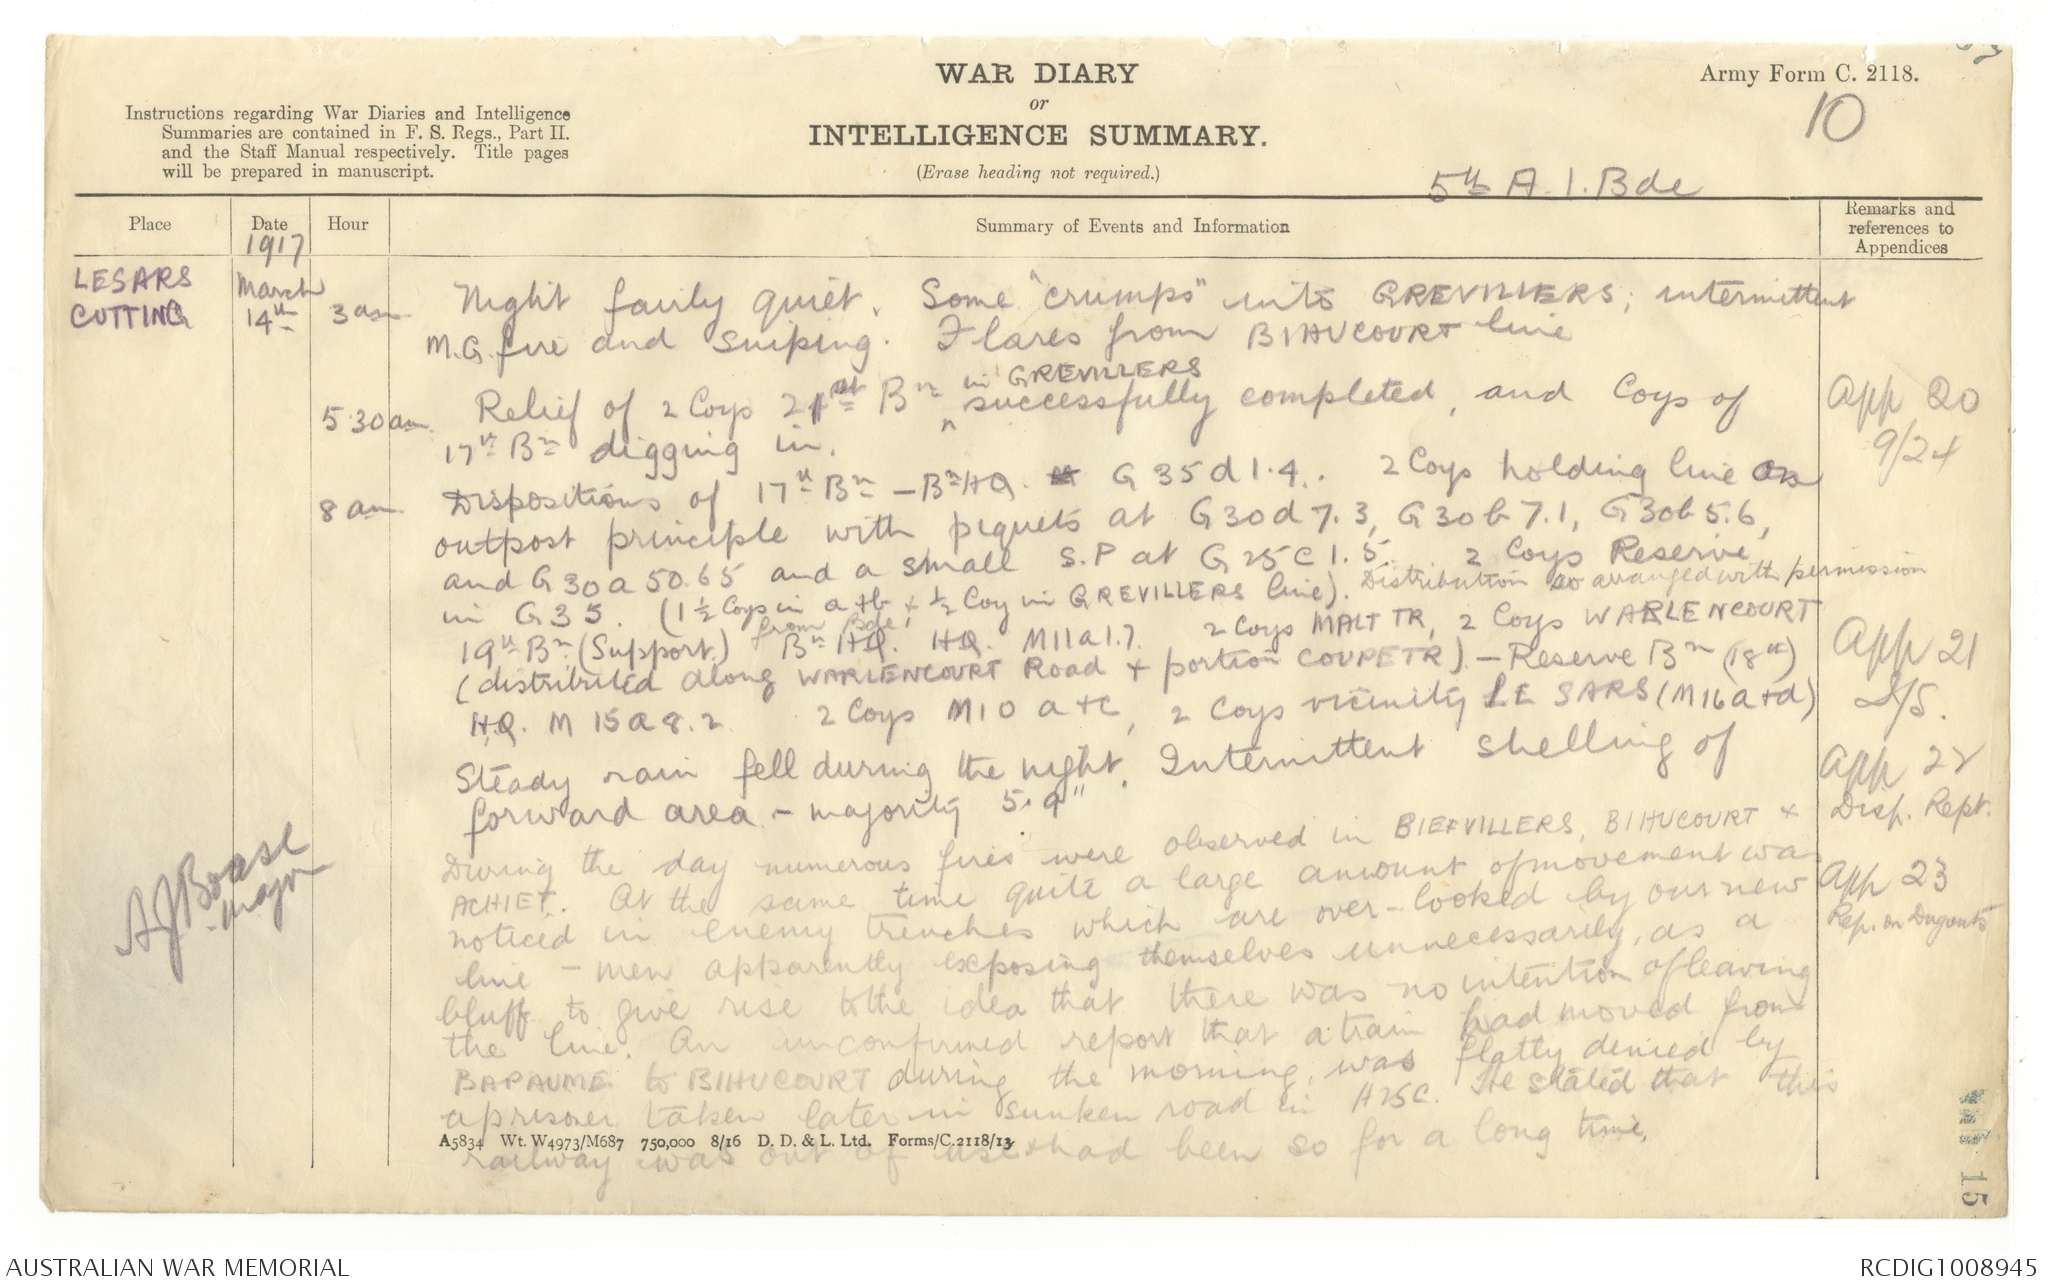 WAR DIARY
or
INTELLIGENCE SUMMARY.
(Erase heading not required.)
Army Form C. 2118.
10
Instructions regarding War Diaries and Intelligence
Summaries are contained in F. S. Regs., Part II.
and the Staff Manual respectively. Title pages
will be prepared in manuscript.
5th A.I.Bde
Place Date Hour Summary of Events and Information Remarks and references to Appendices
1917
LESARS CUTTING March 14th 3am Night fairly quiet. Some "crumps" into GREVILLERS; intermittent
M.G. fire and sniping. Flares from BIHUCOURT line
5.30am Relief of 2 Coys 21st Bn in GREVILLERS successfully completed, and Coys of App 20
17th Bn digging in. 9/24
8am Dispositions of 17th Bn - Bn HQ. G35d1.4. 2 Coys holding line on
outpost principle with piquets at G30d7.3, G30b7.1, G30b5.6,
and G30a50.65 and a small S.P at G25C1.5. 2 Coys Reserve
in G35. (1½ Coys in a+b + ½ Coy in GREVILLERS line). Distribution so arranged with permission
from Bde.
19th Bn (Support.) Bn HQ. HQ. M11a1.7. 2 Coys MALT TR, 2 Coys WARLENCOURT App 21
(distributed along WARLENCOURT Road + portion COUPE TR) - Reserve Bn (18th)
HQ. M15a8.2 2 Coys M10 a+c, 2 Coys vicinity LE SARS (M16a+d)
Steady rain fell during the night. Intermittent shelling of App 22
forward area - majority 5.9" Disp. Rept.
During the day numerous fires were observed in BIEFVILLERS, BIHUCOURT +
ACHIET. At the same time quite a large amount of movement was App 23
noticed in enemy trenches which are over-looked by our new Rep. on Dugouts
line - men apparently exposing themselves unnecessarily, as a
bluff to give rise to the idea that there was no intention of leaving
the line. An unconfirmed report that a train had moved from
BAPAUME to BIHUCOURT during the morning, was flatly denied by
a prisoner taken later in sunken road in H25C. He stated that this
railway was out of use + had been so for a long time.
AJBoase
Major
A5834 Wt. W4973/M687 750,000 8/16 D. D. & L. Ltd. Forms/C.2118/13
15
AUSTRALIAN WAR MEMORIAL
RCDIG1008945